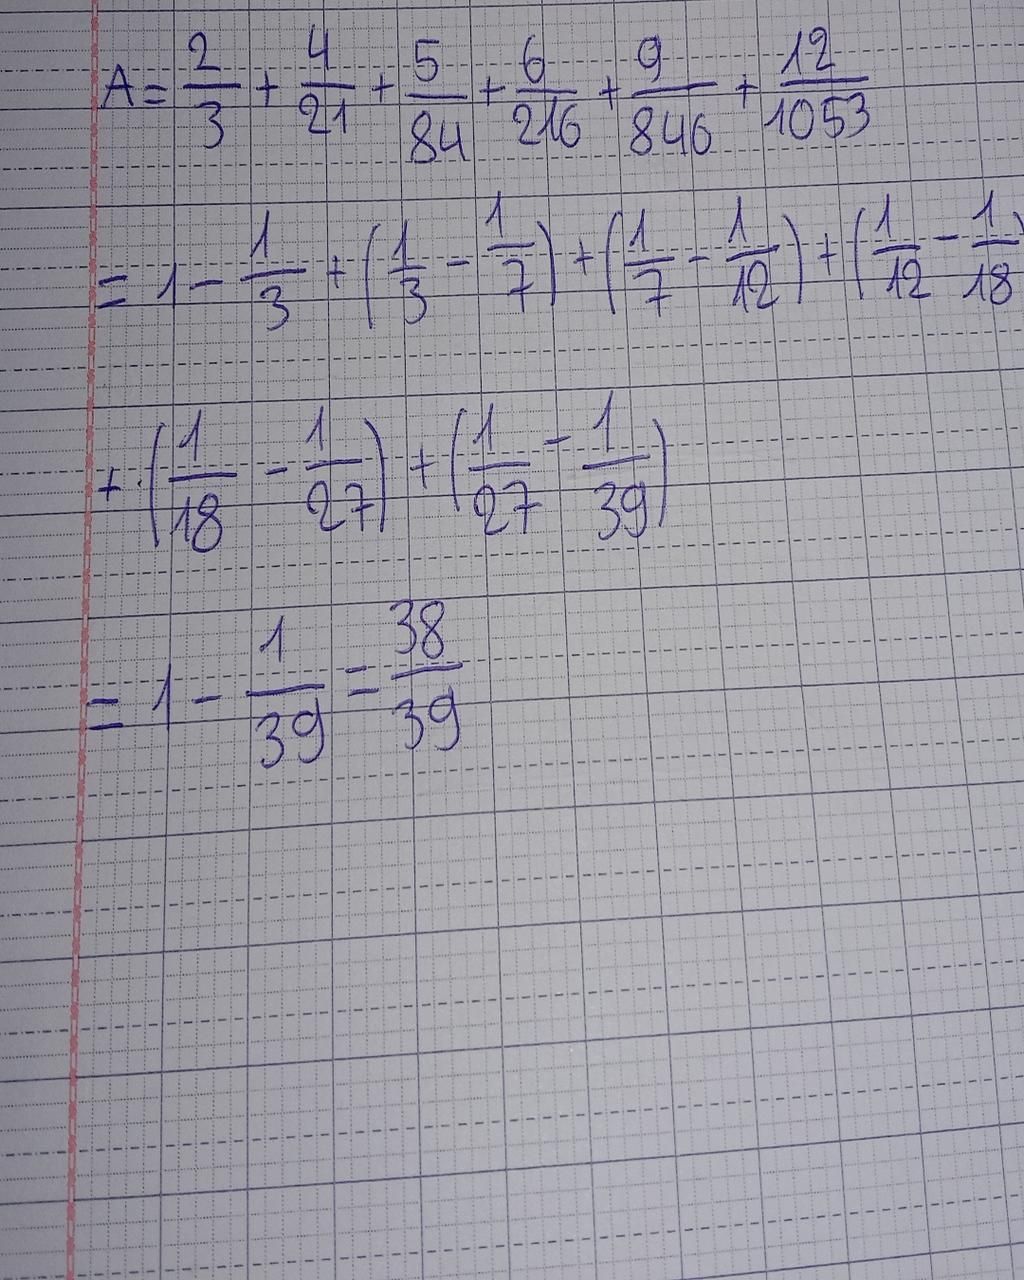 A = 2/3 + 4/21 + 5/84 + 6/216 + 9/846 + 12/1053
= 1 - 1/3 + (1/3 - 1/7) + (1/7 - 1/12) + (1/12 - 1/18)
+ (1/18 - 1/27) + (1/27 - 1/39)
= 1 - 1/39 = 38/39